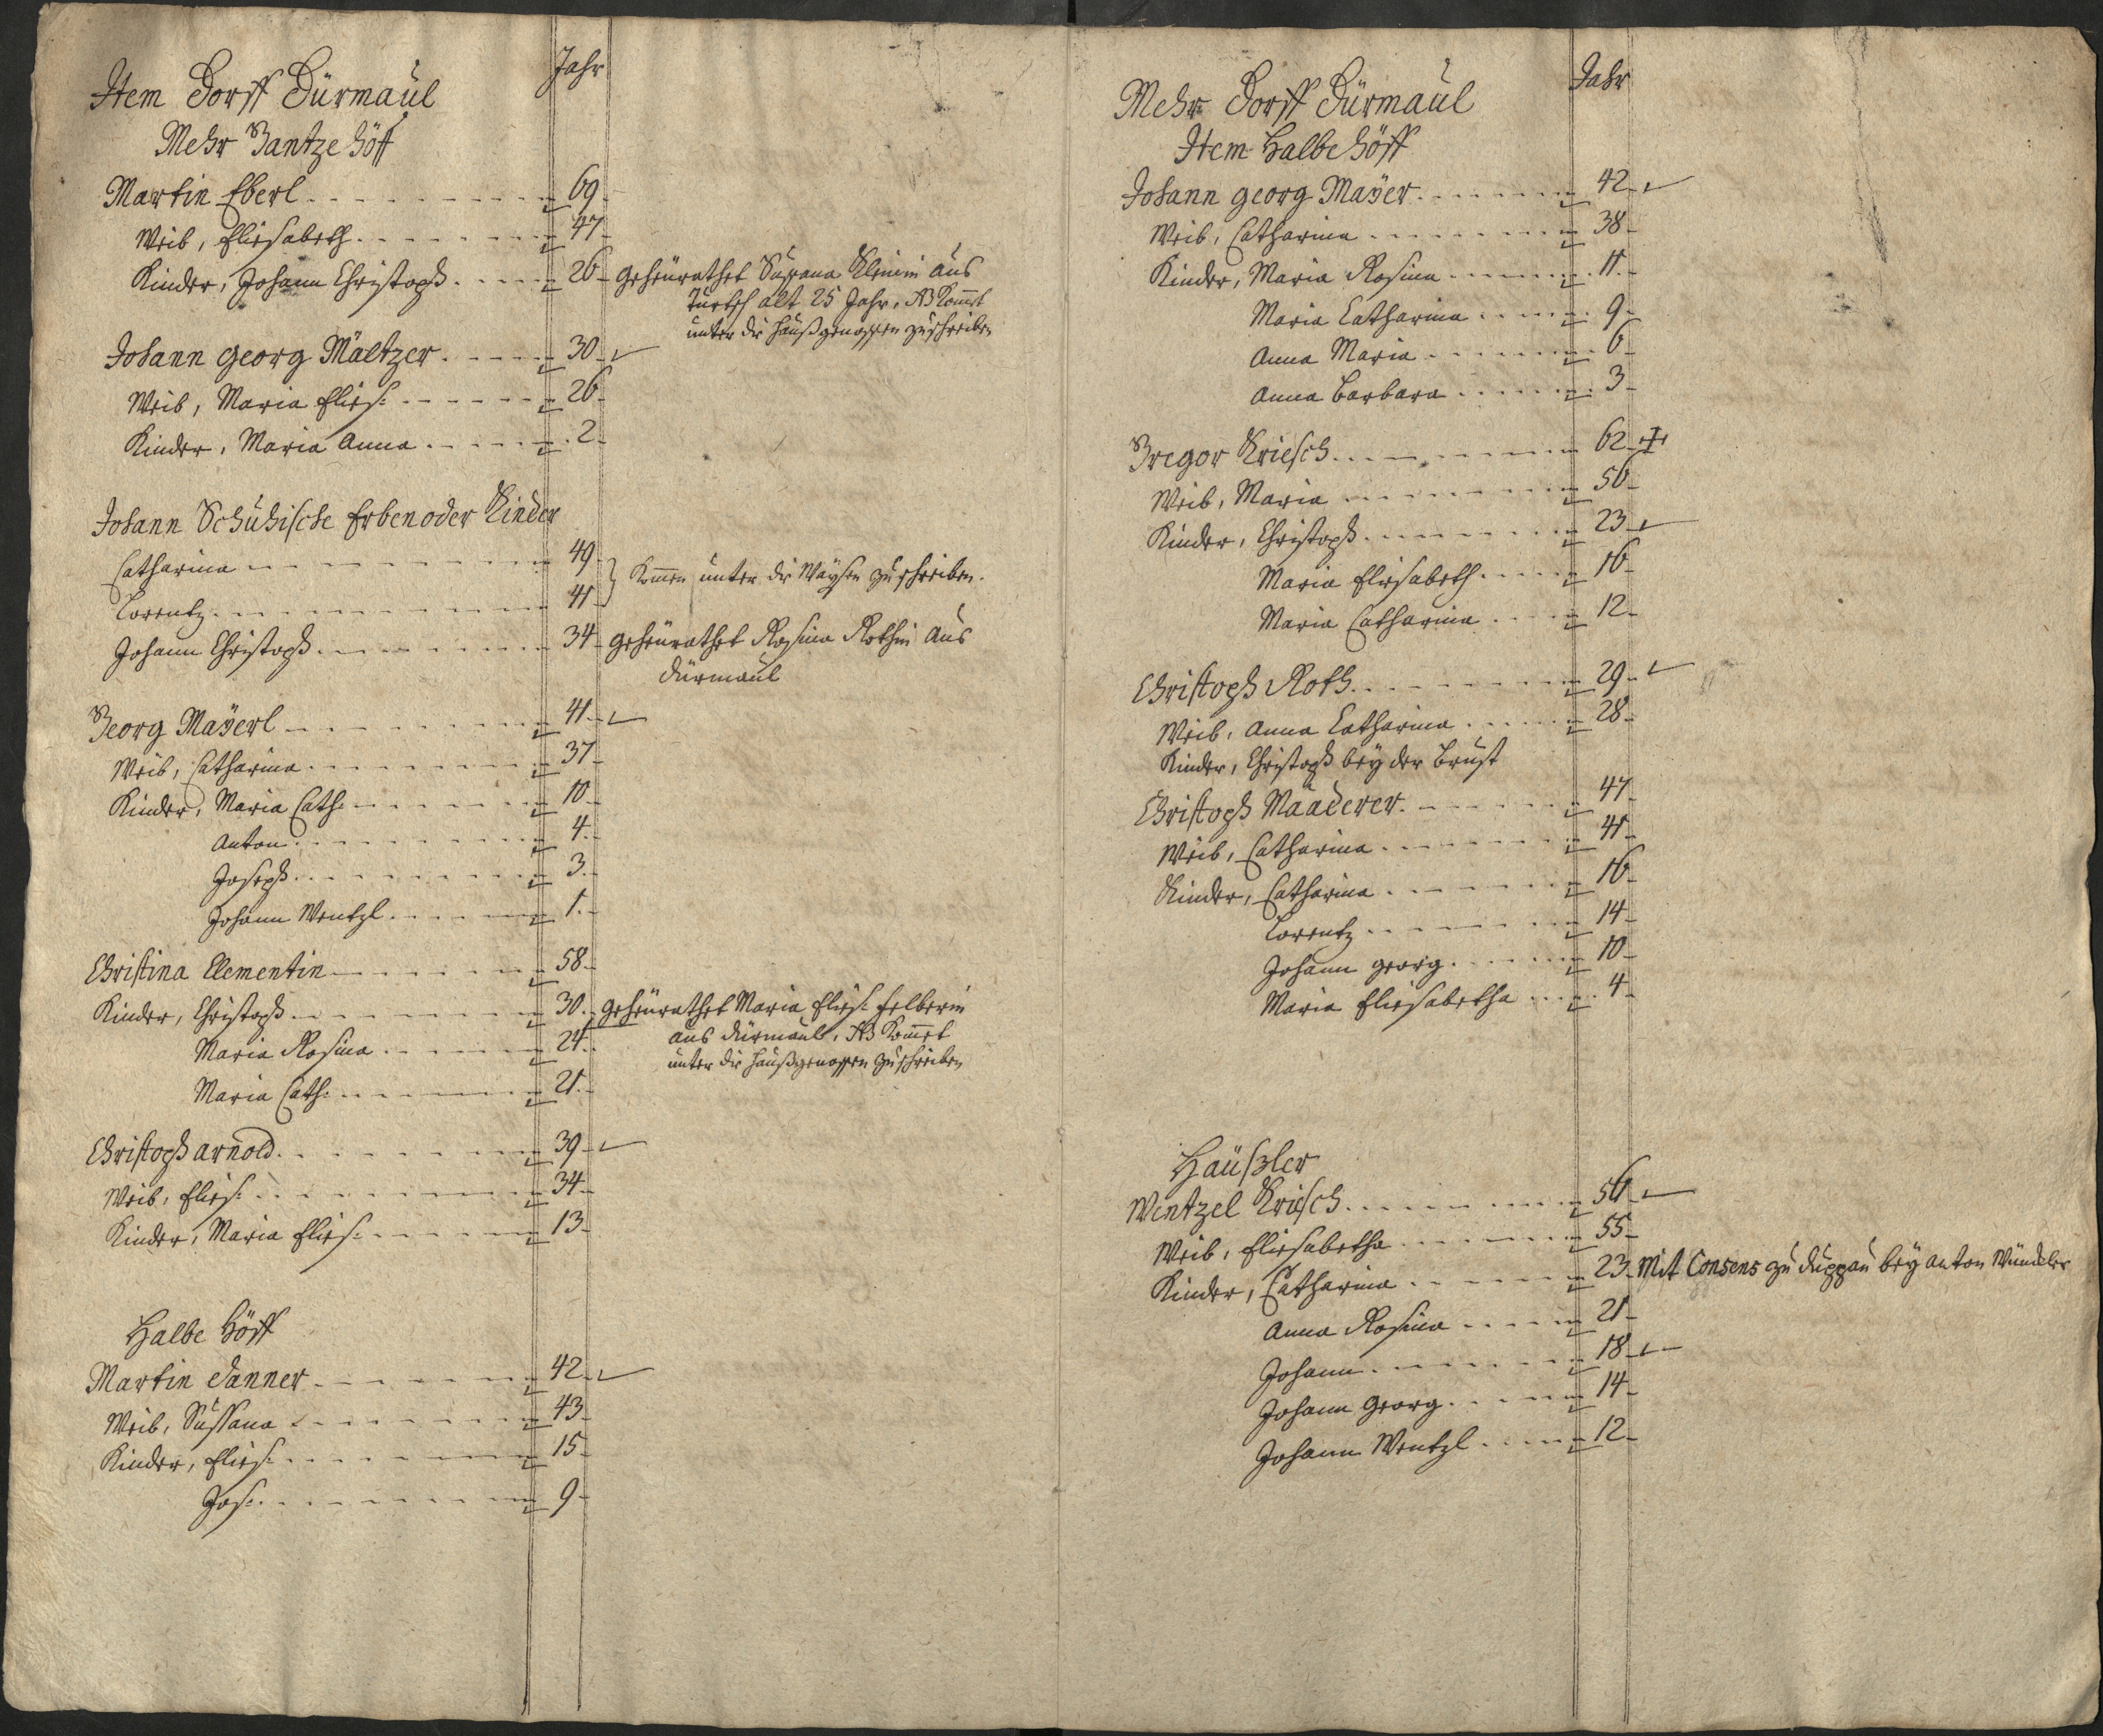 Item Dorff Dürmaul
Jahr
Mehr Gantze Höff
Martin Eberl 69
Weib, Eliesabeth 47
Kinder, Johann Christoph 26 geheürathet Susana Kleinin aus
Turtsch alt 25 Jahr, NB Kom̄et
unter die Haußgenossen zuschreiben
Johann Georg Mältzer 30
Weib, Maria Elies: 26
Kinder, Maria Anna 2
Johann Schuhische Erben oder Kinder
Catharina 49
Kom̄en unter die Waÿsen zuschreiben.
Lorentz 41
Johann Christoph 34 geheürathet Rosina Rothin aus
Dürmaul
Georg Maÿerl 41
Weib, Catharina 37
Kinder, Maria Cath: 10
Anton 4
Joseph 3
Johann Wentzl 1
Christina Clementin 58
Kinder, Christoph 30 geheürathet Maria Elies: Felberin
aus Dürmaul, NB Kom̄et
Maria Rosina 24
unter die Haußgenossen zuschreiben
Maria Cath: 21
Christoph Arnold 39
Weib, Elies: 34
Kinder, Maria Elies: 13
Halbe Höff
Martin Danner 42
Weib, Sussana 43
Kinder, Elies: 15
Jos: 9
Mehr Dorff Dürmaul
Jahr
Item Halbe Höff
Johann Georg Maÿer 42
Weib, Catharina 38
Kinder, Maria Rosina 11
Maria Catharina 9
Anna Maria 6
Anna Barbara 3
Gregor Kriesch 62
Weib, Maria 56
Kinder, Christoph 23
Maria Eliesabeth 16
Maria Catharina 12
Christoph Roth 29
Weib, Anna Catharina 28
Kinder, Christoph beÿ der Brust
Christoph Maaderer 47
Weib, Catharina 41
Kinder, Catharina 16
Lorentz 14
Johann Georg 10
Maria Eliesabetha 4
Häußler
Wentzel Kriesch 56
Weib, Eliesabetha 55
Kinder, Catharina 23 Mit Consens zu Duppau beÿ Anton
Anna Rosina 21
Johann 18
Johann Georg 14
Johann Wentzl 12